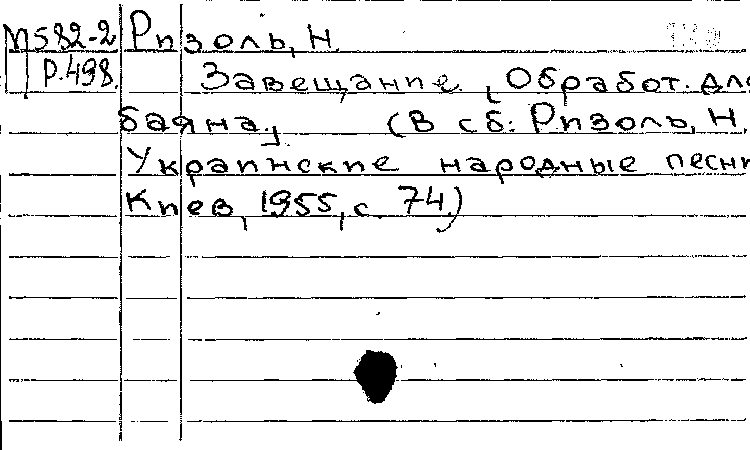 М582-2 Ризоль, Н.
Р.498. Завещание. [Обработ. для
баяна.] (В сб: Ризоль, Н.
Украинские народные песни
Киев, 1955, с. 74.)